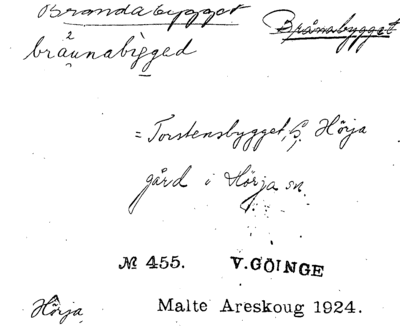 Brandabygget
Brånabygget
bråunabigged
= Torstensbygget, Hörja
gård i Hörja sn.
№ 455. V. GÖINGE
Hörja Malte Areskoug 1924.